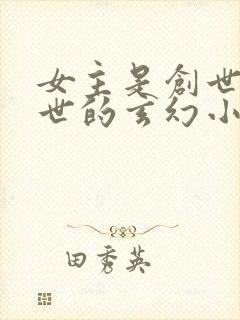 女主是创世
世的玄幻小
田秀英